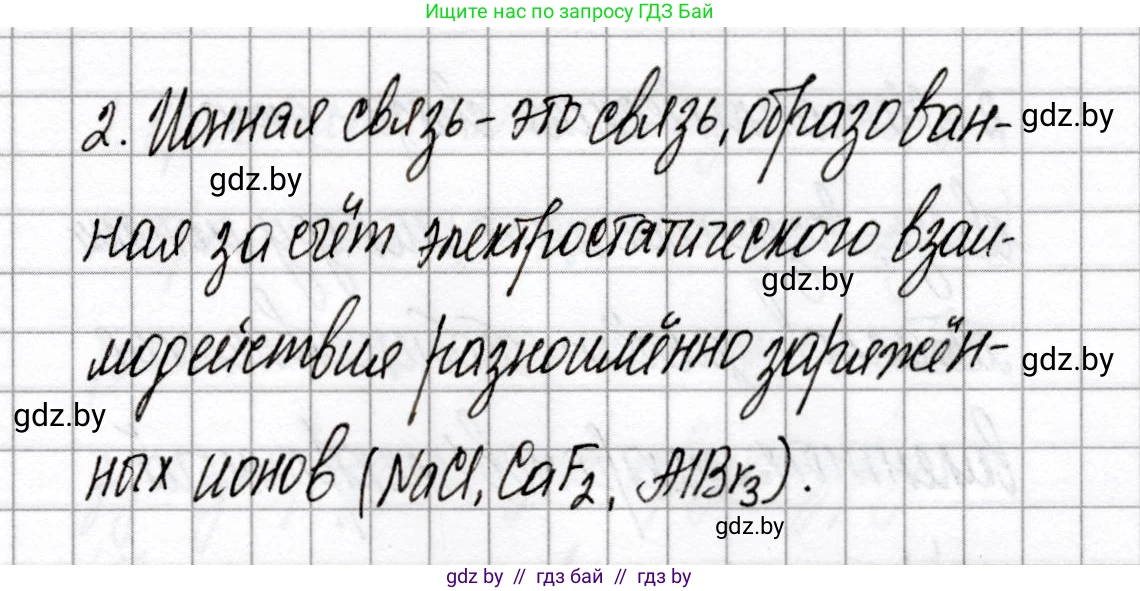 Ищите нас по запросу ГДЗ Бай
2. Ионная связь – это связь, образован-
gdz.by
gdz.by
ная за счёт электростатического взаи-
gdz.by
модействия разноимённо заряжён-
gdz.by
gdz.by
ных ионов (NaCl, CaF₂, AlBr₃).
gdz.by
gdz by // гдз бай // гдз by